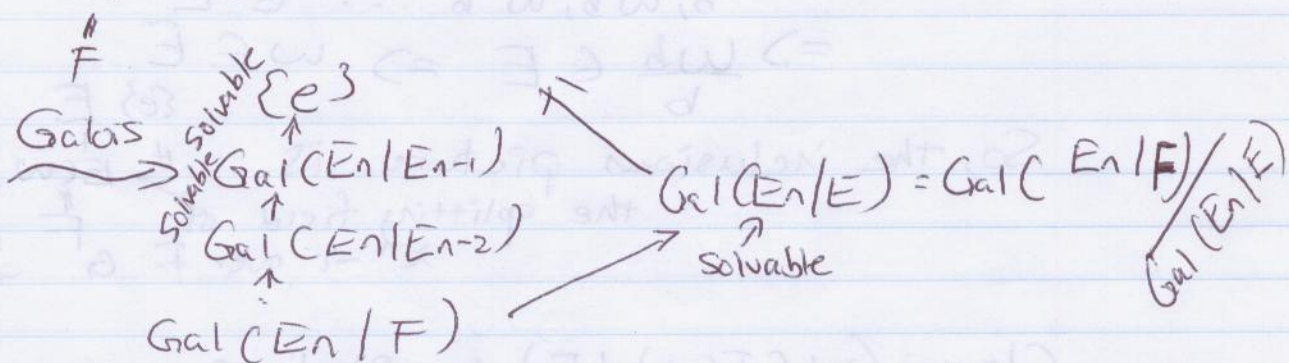 F
Galois
solvable {e}
solvable Gal(En/En-1)
Gal(En/En-2)
Gal(En/F)
Gal(En/E) = Gal(En/F)/Gal(En/E)
solvable